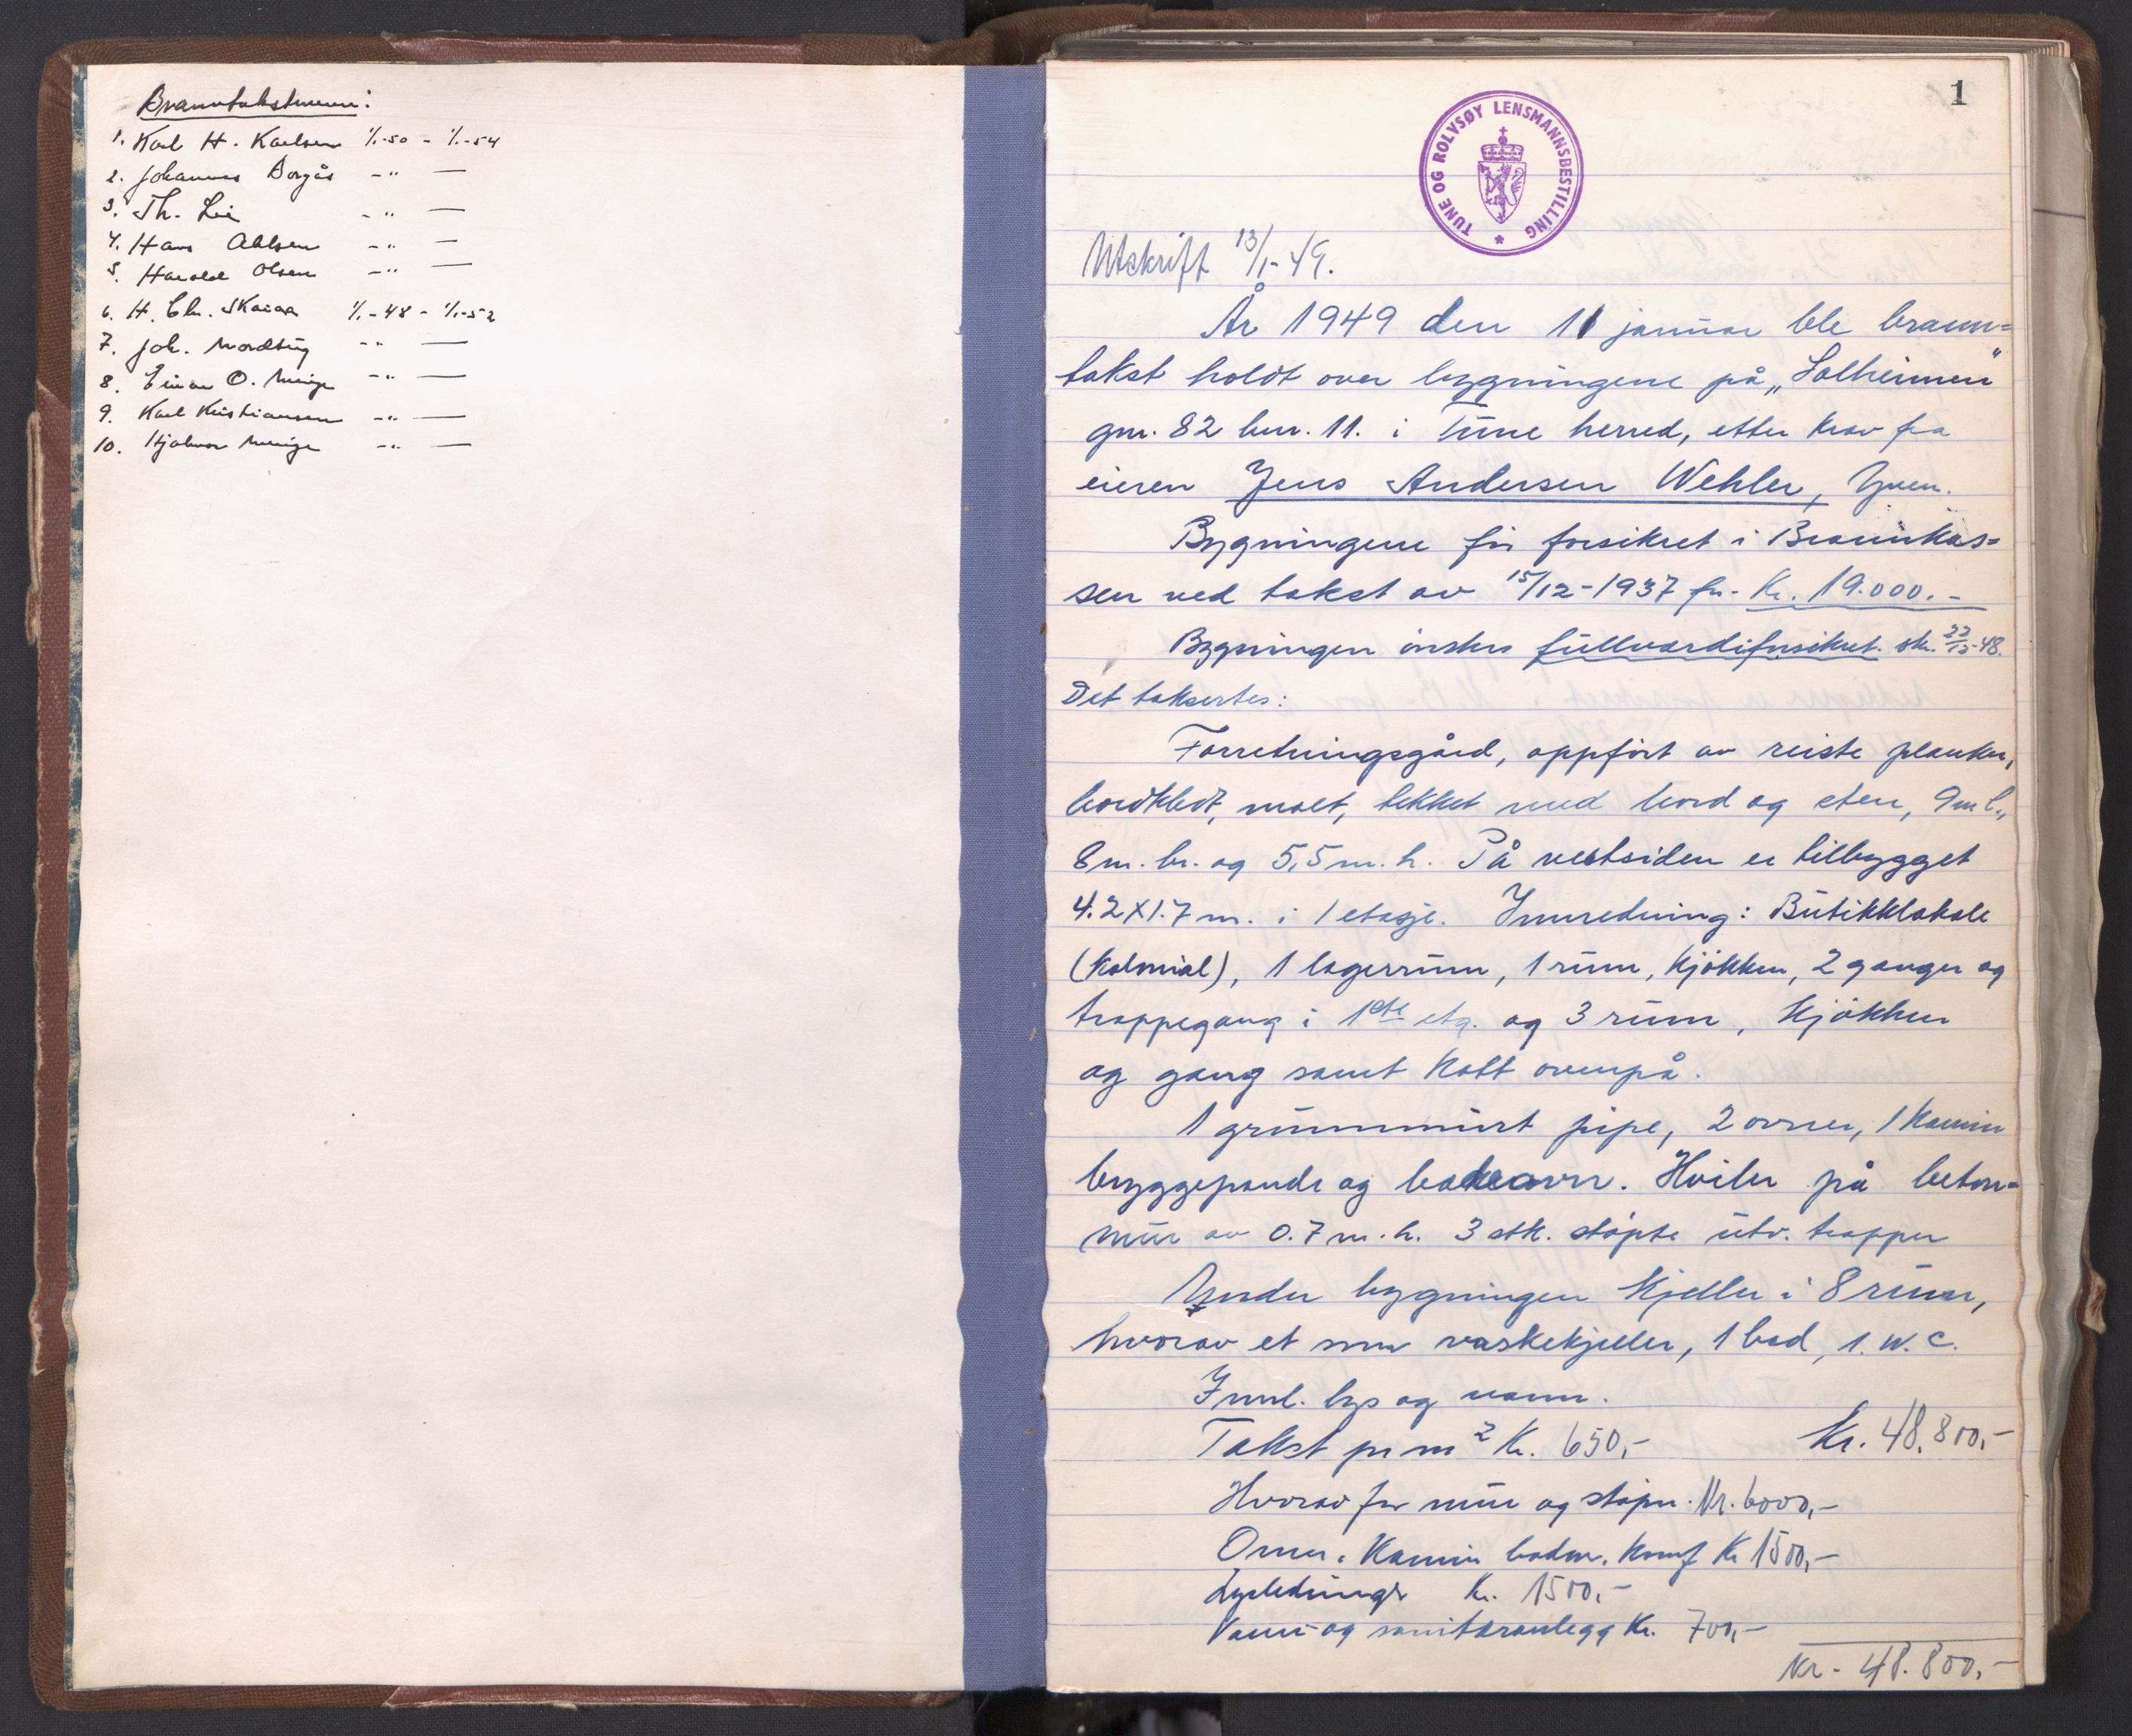 Branntakstmenn:
1. Karl H. Karlsen 1/1-50 - 1/1-54
2. Johannes Borgås -"- —
3. Th. Lie -"- —
4. Hans Ahlsen -"- —
5. Harald Olsen -"- —
6. H. Chr. Skaiaa 1/1-48 - 1/1-52
7. Joh. Nordby -"- —
8. Einar O. Minge -"- —
9. Karl Kristiansen -"- —
10. Hjalmar Minge -"- —
1
TUNE OG ROLVSØY LENSMANNSBESTILLING
Utskrift 13/1-49.
År 1949 den 11 januar ble brann=
takst holdt over bygningene på „Solheimen"
gnr. 82 bnr. 11. i Tune herred, etter krav fra
eieren Jens Andersen Wehler, Yven.
Bygningene før forsikret i Brannkas=
sen ved takst av 15/12-1937 for Kr. 19.000.-
Bygningen ønskes fullverdiforsikret. skr. 22/12-48.
Det taksertes:
Forretningsgård, oppført av reiste planker,
bordkledt, malt, tekket med bord og sten, 9 m l.,
8 m. br. og 5,5 m. h. På vestsiden er tilbygget
4.2 X 1.7 m. i 1 etasje. Innredning: Butikklokale
(kolonial), 1 lagerrum, 1 rum, kjøkken, 2 ganger og
trappegang i 1ste etg. og 3 rum, kjøkken
og gang samt kott ovenpå.
1 grunnmurt pipe, 2 ovner, 1 kamin
bryggepande og badeovn. Hviler på beton=
mur av 0.7 m. h. 3 stk. støpte utv. trapper
Under bygningen kjeller i 8 rum,
hvorav et som vaskekjeller, 1 bad, 1. W.C.
Innl. lys og vann.
Takst pr m2 Kr. 650,- Kr. 48.800,-
Hvorav for mur og støpn. Kr. 6000,-
Ovner, Kamin badeov. komf Kr 1500,-
Lysledninger Kr. 1500,-
Vann- og sanitæranlegg Kr. 700,-
Kr. 48.800,-